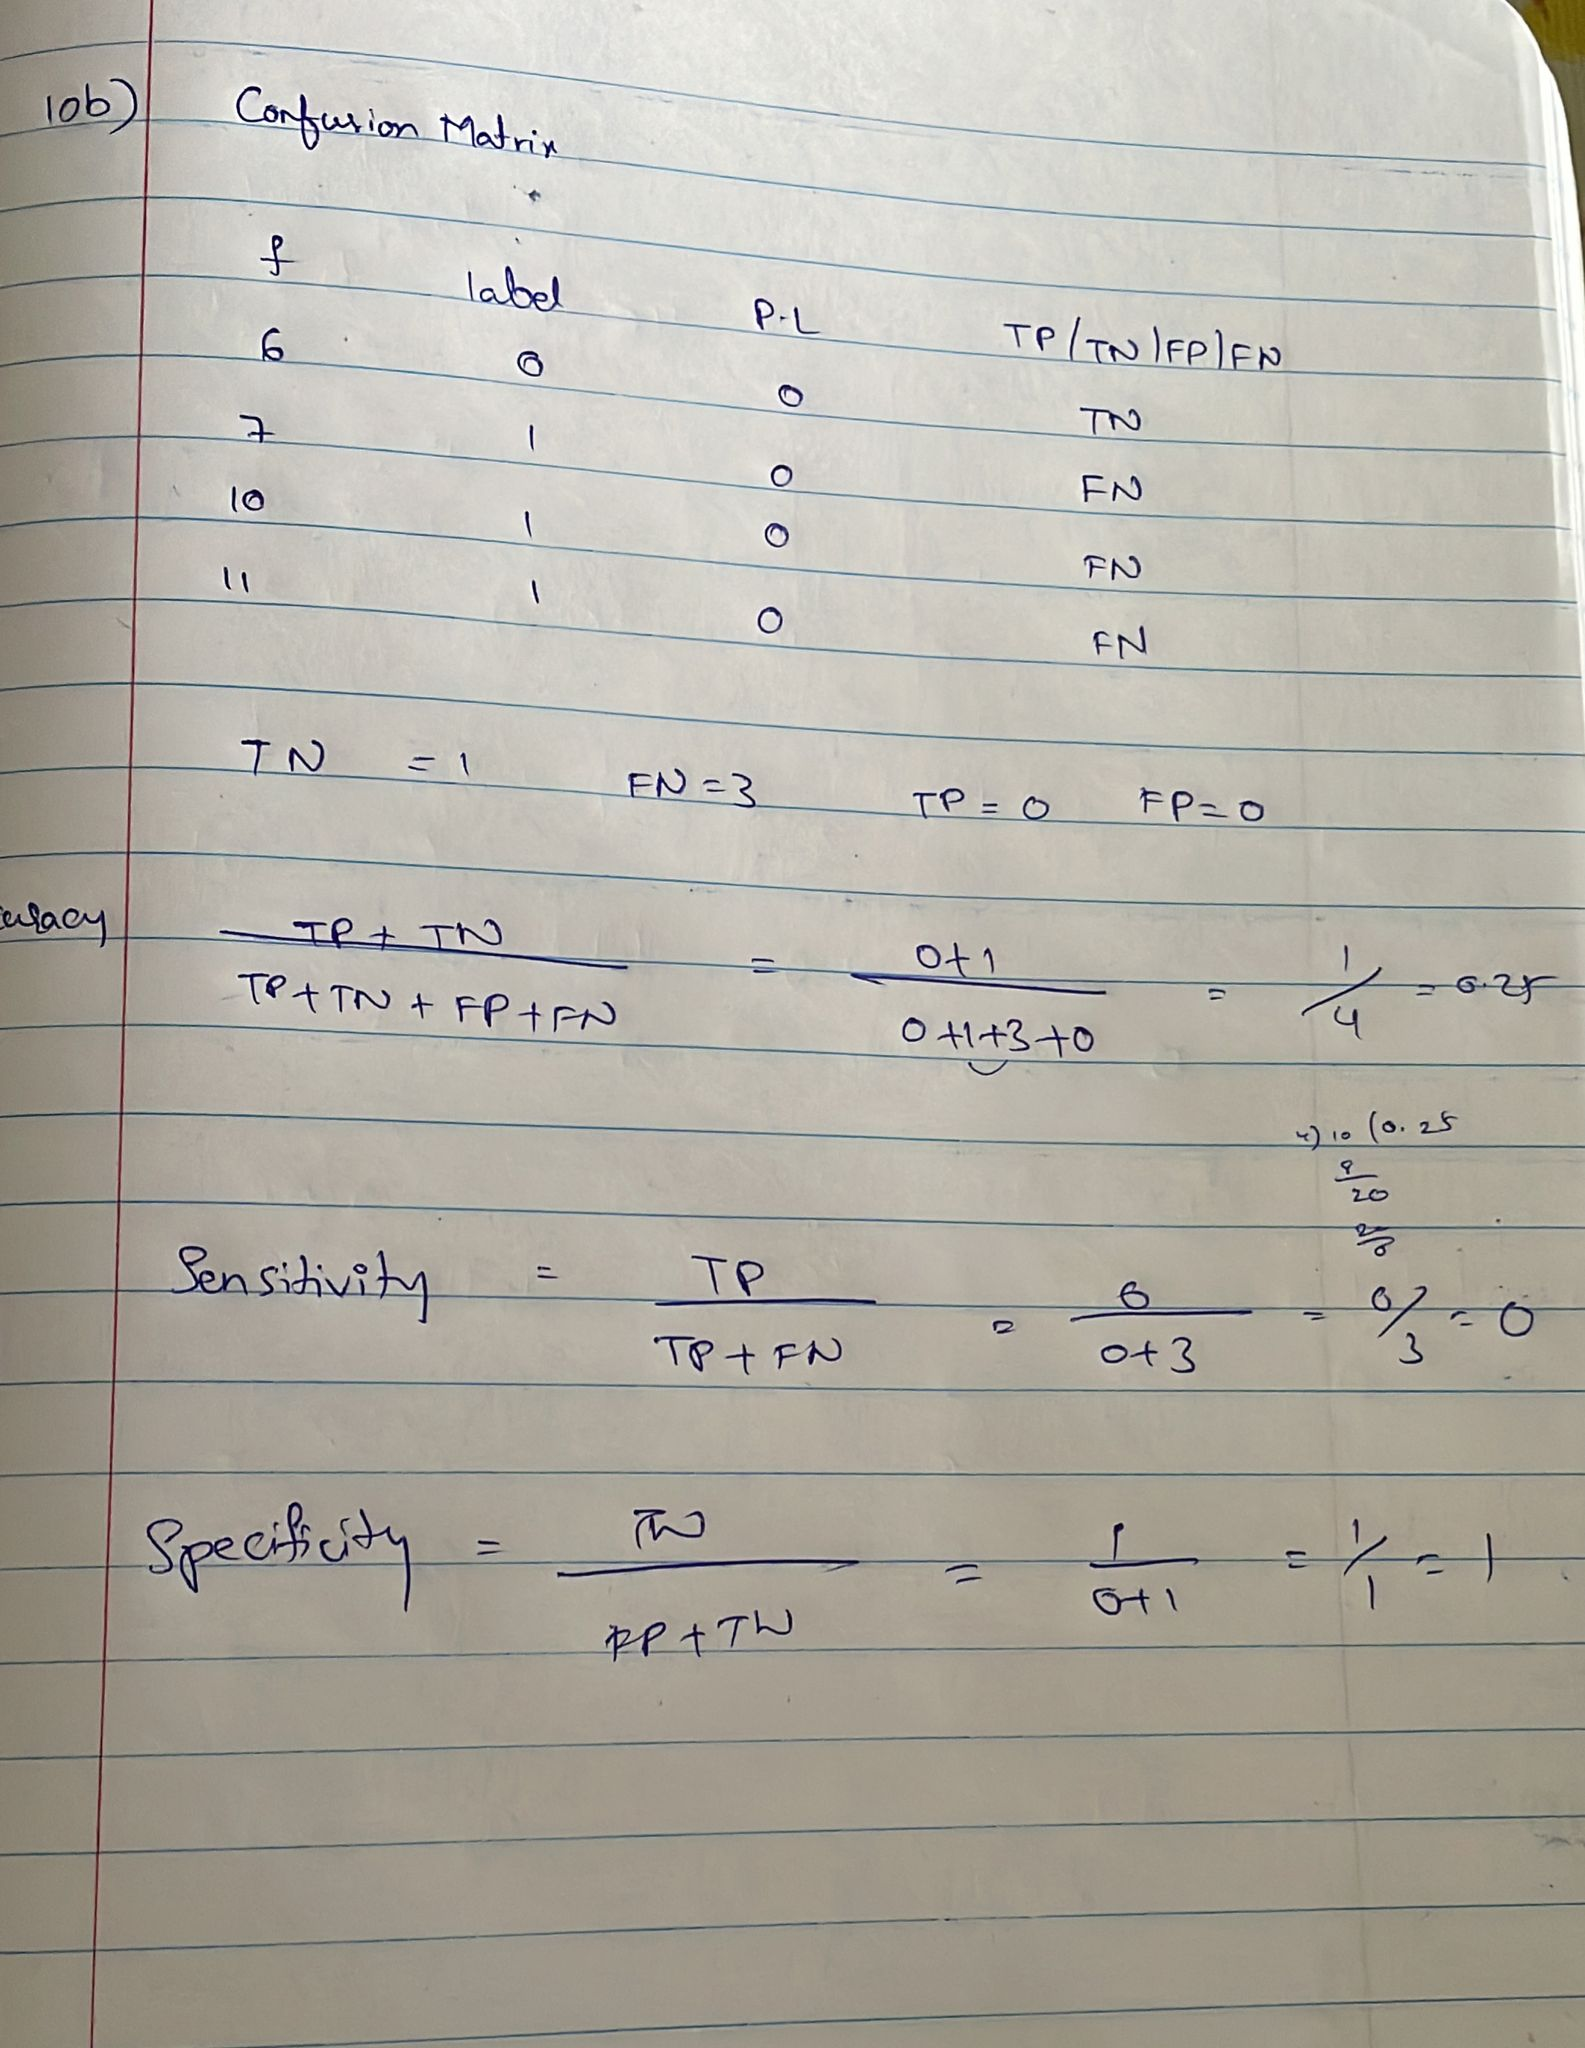 10b) Confusion Matrix
f label P.L TP/TN/FP/FN
6 0 0 TN
7 1 0 FN
10 1 0 FN
11 1 0 FN
TN = 1 FN = 3 TP = 0 FP = 0
curacy TP + TN / TP + TN + FP + FN = 0+1 / 0+1+3+0 = 1/4 = 0.25
4) 10 (0.25
8
20
20
Sensitivity = TP / TP + FN = 0 / 0+3 = 0/3 = 0
Specificity = TN / FP + TN = 1 / 0+1 = 1/1 = 1